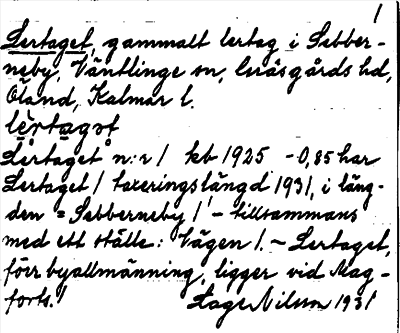 1
Lertaget, gammalt lertag i Sebber-
neby, Ventlinge sn, Gräsgårds hd,
Öland, Kalmar l.
lèrtagət
Lertaget n:r 1 kb 1925 - 0,85 har
Lertaget / taxeringslängd 1931, i läng-
den = Sebberneby / - tillsammans
med ett ställe: Vägen 1. ~ Lertaget,
förr byallmänning, ligger vid Mag-
forts. / Stage Nilsson 1931